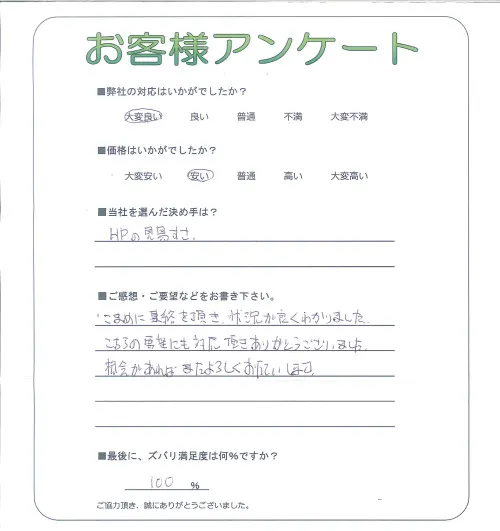 お客様アンケート
■弊社の対応はいかがでしたか?
大変良い 良い 普通 不満 大変不満
■価格はいかがでしたか?
大変安い 安い 普通 高い 大変高い
■当社を選んだ決め手は?
HPの見易すさ。
■ご感想・ご要望などをお書き下さい。
こまめに連絡を頂き、状況が良くわかりました。
こちらの要望にも対応頂きありがとうございました。
機会があればまたよろしくお願いします。
■最後に、ズバリ満足度は何%ですか?
100 %
ご協力頂き、誠にありがとうございました。